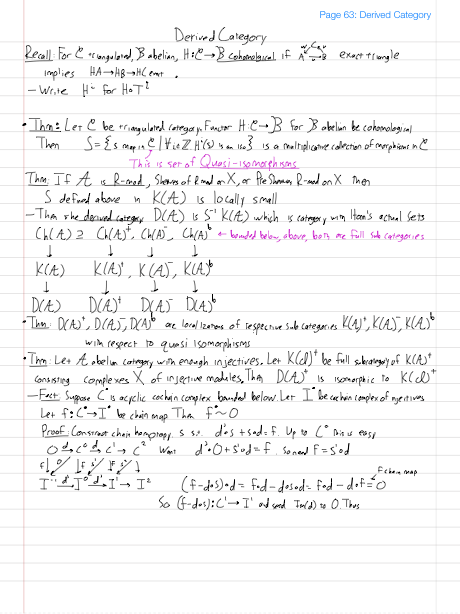 Page 63: Derived Category
Derived Category
Recall: For C triangulated, B abelian, H: C → B cohomological if A → B exact triangle
implies HA → HB → HC exact.
- Write Hⁱ for H∘Tⁱ
• Thm: Let C be triangulated category. Functor H: C → B for B abelian be cohomological
Then S = { s map in C | ∀ i ∈ Z Hⁱ(s) is an iso } is a multiplicative collection of morphisms in C
This is set of Quasi-isomorphisms
Thm: If A is R-mod, Sheaves of R mod on X, or Pre Sheaves R-mod on X then
S defined above in K(A) is locally small
- Then the derived category D(A) is S⁻¹ K(A) which is category with Hom's actual sets
Ch(A) ⊇ Ch(A)⁺, Ch(A)⁻, Ch(A)ᵇ ← bounded below, above, both are full sub categories
↓ ↓ ↓ ↓
K(A) K(A)⁺, K(A)⁻, K(A)ᵇ
↓ ↓ ↓ ↓
D(A) D(A)⁺ D(A)⁻ D(A)ᵇ
• Thm: D(A)⁺, D(A)⁻, D(A)ᵇ are localizations of respective sub categories K(A)⁺, K(A)⁻, K(A)ᵇ
with respect to quasi isomorphisms
• Thm: Let A abelian category with enough injectives. Let K(cl)⁺ be full subcategory of K(A)⁺
consisting complexes X of injective modules, Then D(A)⁺ is isomorphic to K(cl)⁺
- Fact: Suppose C• is acyclic cochain complex bounded below. Let I• be cochain complex of injectives
Let f: C• → I• be chain map. Then f ~ 0
Proof: Construct chain homotopy s s.t. d∘s + s∘d = f. Up to C⁰ this is easy
0 → C⁰ → C¹ → C² Want d∘0 + s¹∘d = f. So need f = s¹∘d
f↓ ↓f s¹ ↓f s²
I⁻¹ → I⁰ → I¹ → I² (f-d∘s)∘d = f∘d - d∘s∘d = f∘d - d∘f = 0
f chain map
So (f-d∘s): C¹ → I¹ and send Im(d) to 0. Thus